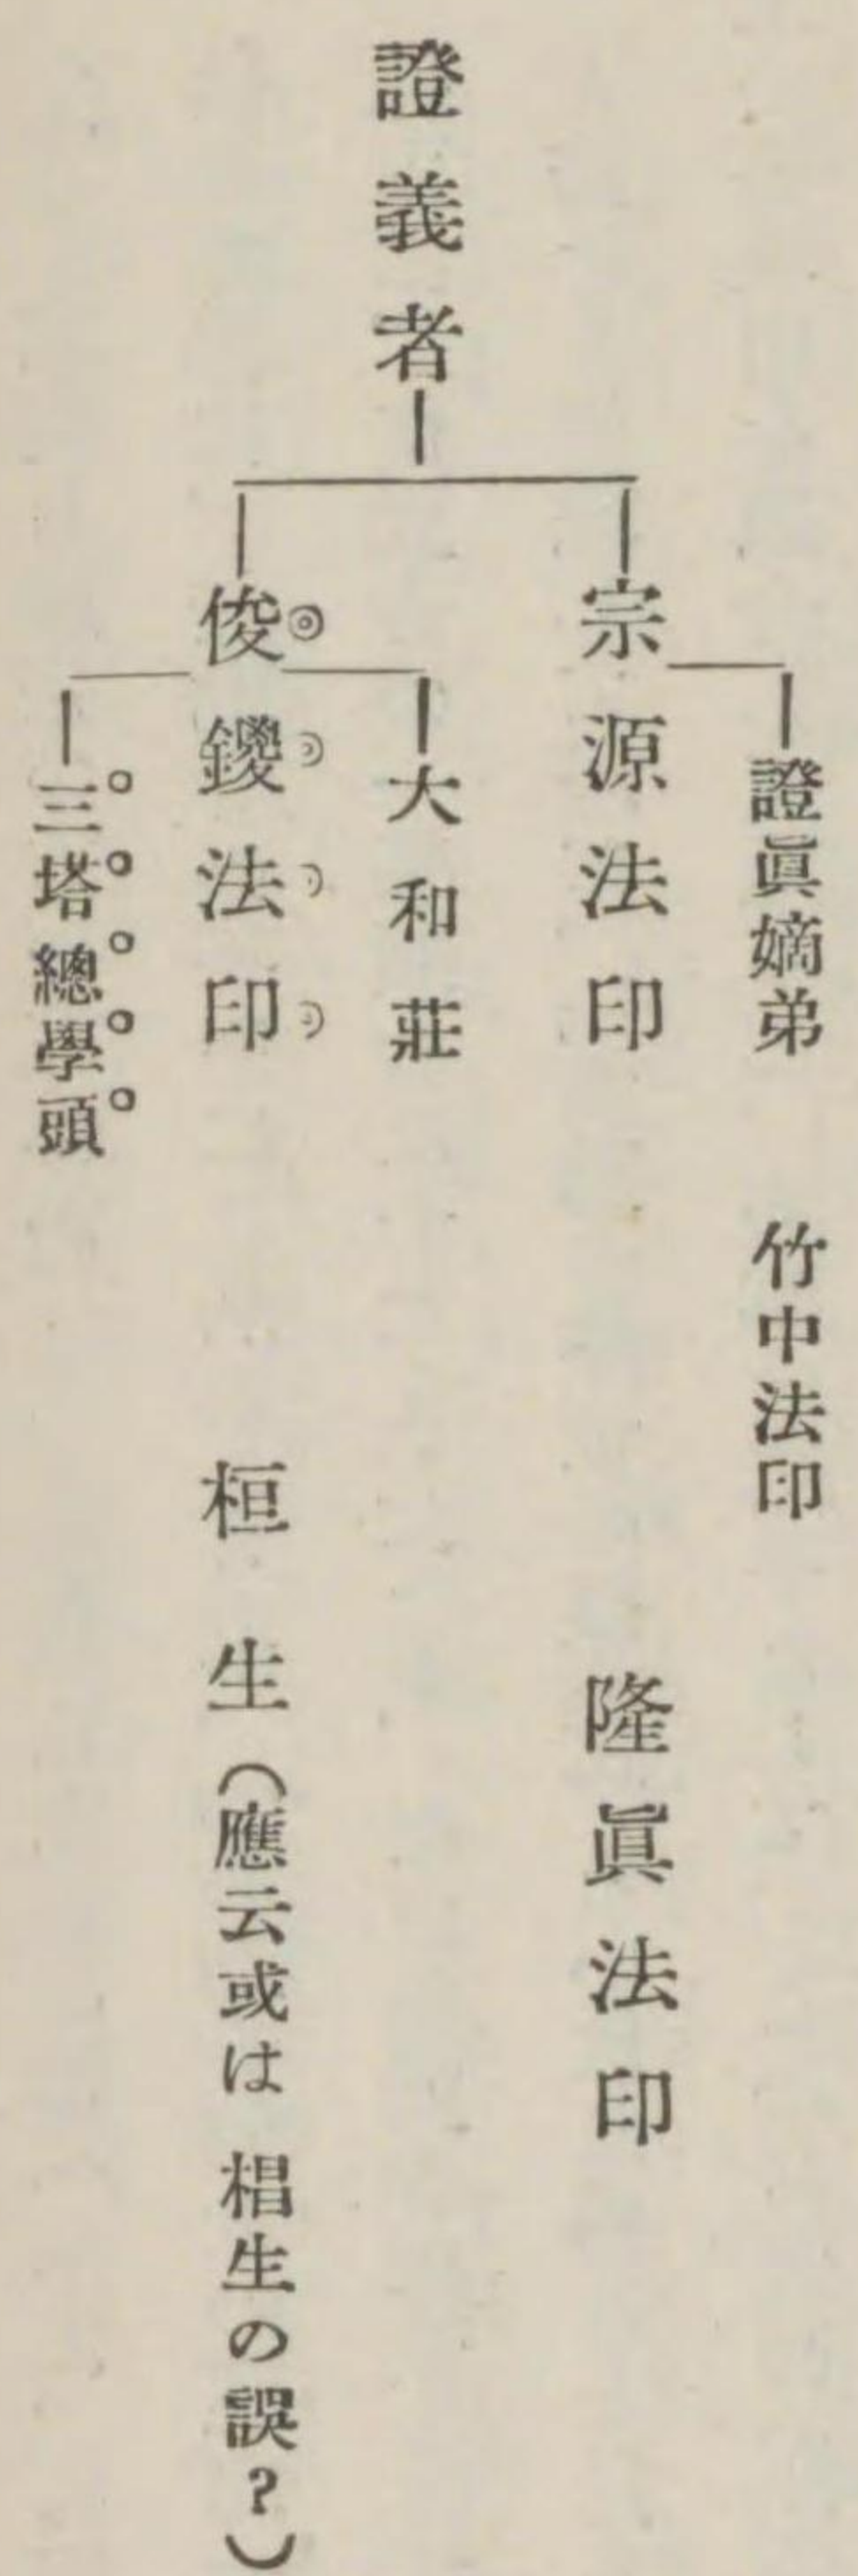 證義者
證眞嫡弟 竹中法印
宗源法印 隆眞法印
大和莊
俊鑁法印 桓生(應云或は椙生の誤?)
三塔總學頭